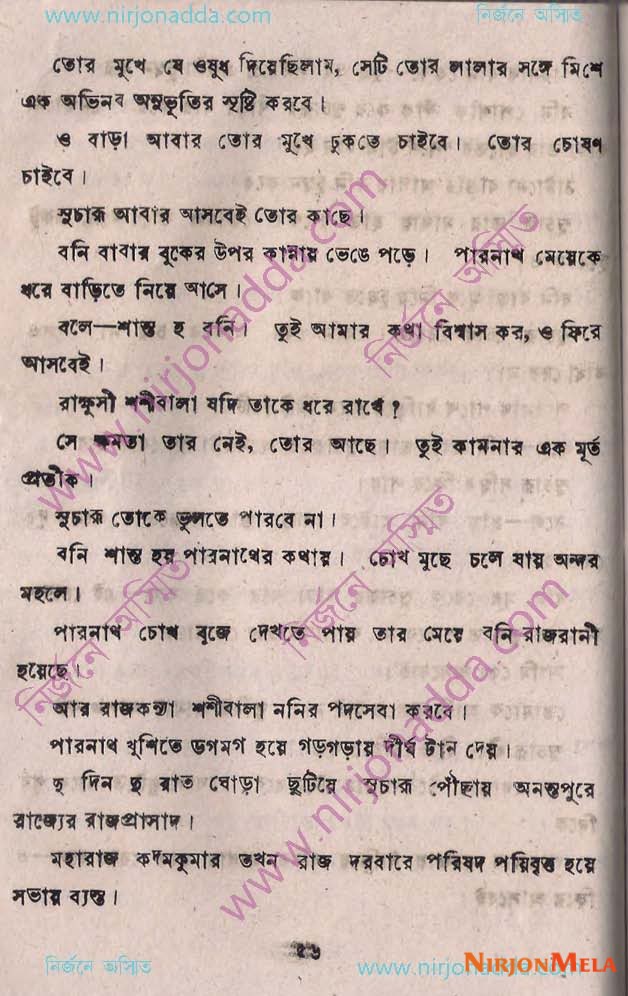 www.nirjonadda.com নির্জনে অস্মিত
তোর মুখে যে ওষুধ দিয়েছিলাম, সেটি তোর লালার সঙ্গে মিশে
এক অভিনব অনুভূতির সৃষ্টি করবে।
ও বাড়া আবার তোর মুখে ঢুকতে চাইবে। তোর চোষণ
চাইবে।
সুচারু আবার আসবেই তোর কাছে।
বনি বাবার বুকের উপর কান্নায় ভেঙে পড়ে। পারনাথ মেয়েকে
ধরে বাড়িতে নিয়ে আসে।
বলে—শান্ত হ বনি। তুই আমার কথা বিশ্বাস কর, ও ফিরে
আসবেই।
রাক্ষুসী শশীবালা যদি তাকে ধরে রাখে?
সে ক্ষমতা তার নেই, তোর আছে। তুই কামনার এক মূর্ত
প্রতীক।
সুচারু তোকে ভুলতে পারবে না।
বনি শান্ত হয় পারনাথের কথায়। চোখ মুছে চলে যায় অন্দর
মহলে।
পারনাথ চোখ বুজে দেখতে পায় তার মেয়ে বনি রাজরানী
হয়েছে।
আর রাজকন্যা শশীবালা ননির পদসেবা করবে।
পারনাথ খুশিতে ডগমগ হয়ে গড়গড়ায় দীর্ঘ টান দেয়।
দু দিন দু রাত ঘোড়া ছুটিয়ে সুচারু পৌঁছায় অনন্তপুরে
রাজ্যের রাজপ্রাসাদ।
মহারাজ কদমকুমার তখন রাজ দরবারে পরিষদ পরিবৃত হয়ে
সভায় ব্যস্ত।
৫৬
নির্জনে অস্মিত www.nirjonadda.com
NIRJONMELA
www.nirjonadda.com
নির্জনে অস্মিত
www.nirjonadda.com
নির্জনে অস্মিত
নির্জনে অস্মিত